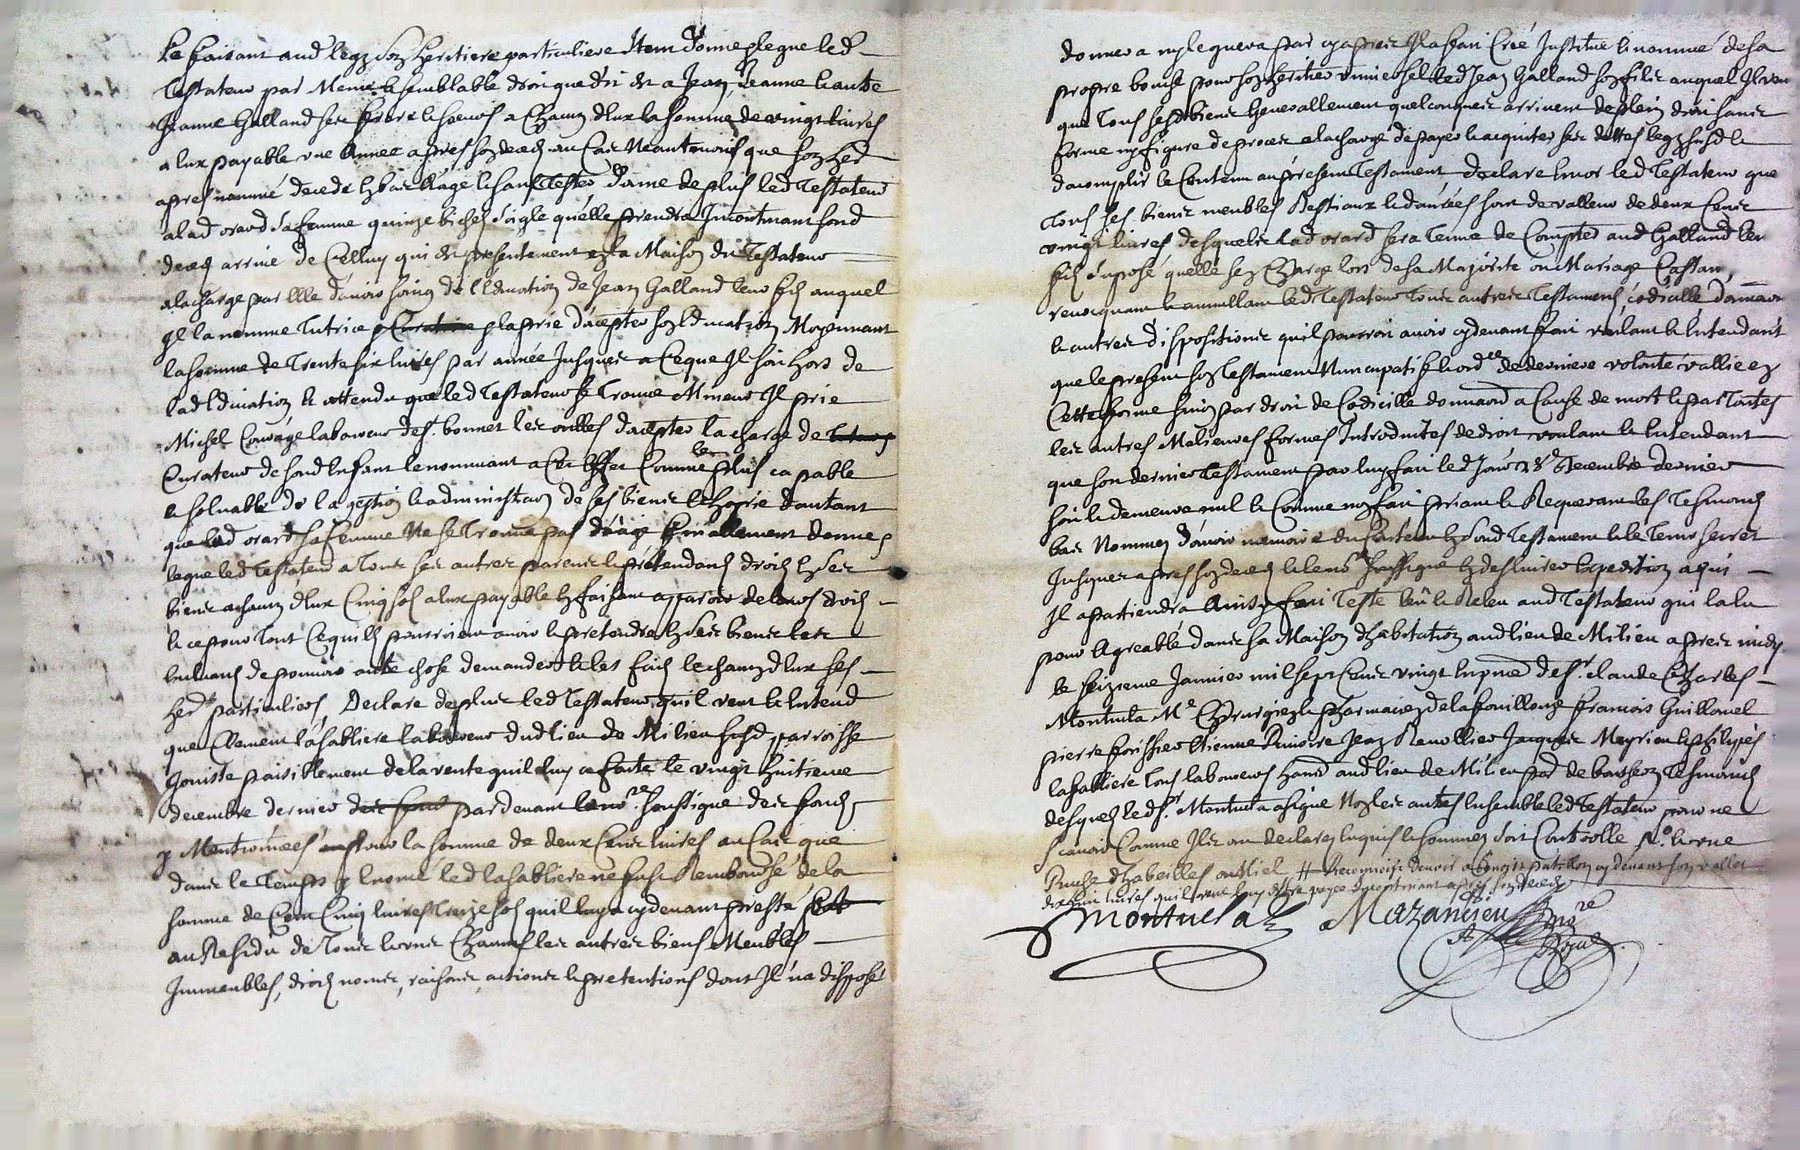 Le faisant aud legz son heritiere particuliere Item donne legue led
Testateur par Meme & semblable droi que dit est a Jean, Jeanne & autre
Jeanne Galland ses frere & soeurs a Chacun d'eux la somme de vingt livres
a eux payable une Année apres son deces au Cas Neantmoins que son her
apres nommé decede en bas Aage & sans Tester donne de plus led Testateur
a lad orard sa femme quinze bichets soigle qu'elle prendra Incontinant sond
deces arrivé de Celluy qui est presentement en sa Maison du Testateur
a la charge par Elle d'avoir soing de l'Education de Jean Galland leur fils auquel
Il la nomme Tutrice & la prie d'acepter son Education Moyennant
la somme de Trente six livres par année Jusques a Ce que Il soit hors de
lad Education & attendu que led Testateur se Trouve Mineur Il prie
Michel Couvage laboureur de St. bonnet les oulles d'acepter la charge de
Curateur de sond Enfant le nommant a Cet Effet Comme le plus capable
& solvable de la gestion & administraon de ses biens & le prie d'autant
que lad orard sa femme Ne se Trouve pas d'aage finallement donne
legue led Testateur a Tous ses autres parents & pretendants droits en ses
biens a chacun d'Eux Cinq sols a Eux payable en faisant apparoir de leurs droits
& ce pour Tout Ce quils pourroient avoir & pretendre en ses biens & les
Excluant de pouvoir autre chose demander & les fait & chacun d'eux ses
hers particuliers, Declare de plus led Testateur qu'il veut & Entend
que Clement lasabliere laboureur dud lieu de Milieu susd parroisse
Jouisse paisiblement de la vente quil luy a faite le vingt huitieme
decembre dernier pardevant le nore. soussigné des fonds
y Mentionnées pour la somme de deux Cents livres au Cas que
dans le Temps y Enoncé led lasabliere ne fust Remboursé de la
somme de Cent Cinq livres treize sols quil luy a cy devant presté
au Residu de Tous & uns Chacuns les autres biens Meubles
Immeubles, droits noms, raisons, actions & pretentions dont Il n'a disposé
donner a ny leguera par cy apres Il a fait Créé Institué & nommé de sa
propre bouche pour son heritier universel led Jean Galland son fils auquel Il veut
que Tous sesd biens Generallement quelconques arrivent de plein droi sans
forme ny figure de proces a la charge de payer & acquiter ses dettes legz susd &
d'acomplir le Contenu au présent Testament declare Encor led Testateur que
Tous ses biens meubles Bestiaux & danrées sont de valleur de deux Cents
vingt livres desquels lad orard sera Tenue de Compter aud Galland leur
fils suposé qu'elle s'en Charge lors de sa Majorité ou Mariage Cassant,
revocquant & annullant led Testateur Tous autres Testaments codicille donnaon
& autres dispositions quil pourroit avoir cy devant fait voulant & Entendant
que le present son Testament Nuncupatif & ord.ce de derniere volonté vallie en
Cette forme sinon par droi de Codicille donnaon a Cause de mort & par Toutes
les autres Malieures formes Introduites de droit voulant & Entendant
que son dernier Testament par luy fait led Jour 28e Decembre dernier
soit & demeure nul & Comme non fait priant & Requerant les Tesmoins
bas Nommez d'avoir memoire du Contenu en sond Testament & le Tenir secret
Jusques apres son deces & le nore soussigné en deslivrer Expedition a qui
Il apartiendra Ainsy fait Testé leû & Releu aud Testateur qui l'a lu
pour Agreable dans sa Maison d'habitation aud lieu de Milieu apres midy
le seizieme Janvier mil sept Cents vingt En pnce de sr. claude Charles
Montucla Me Chirurgien & pharmacien de la fouillouze francois Guillomel
pierre forissier Etienne Rimoire Jean Renollier Jacques Meyrieu & philipes
lasabliere Tous laboureurs hants aud lieu de Milieu psse de bouthéon Tesmoins
desquels led sr. Montucla a signé Non les autres Ensemble led Testateur pour ne
scavoir Comme Ils ont declarez Enquis & sommez soit Controlle
Ruche d'habeilles au Miel # Recognoist devoir a benoist cy devant son vallet
dix huit livres quil veut luy estre payée Incontinant apres son deces
Montucla Mazancieu nore
Royal